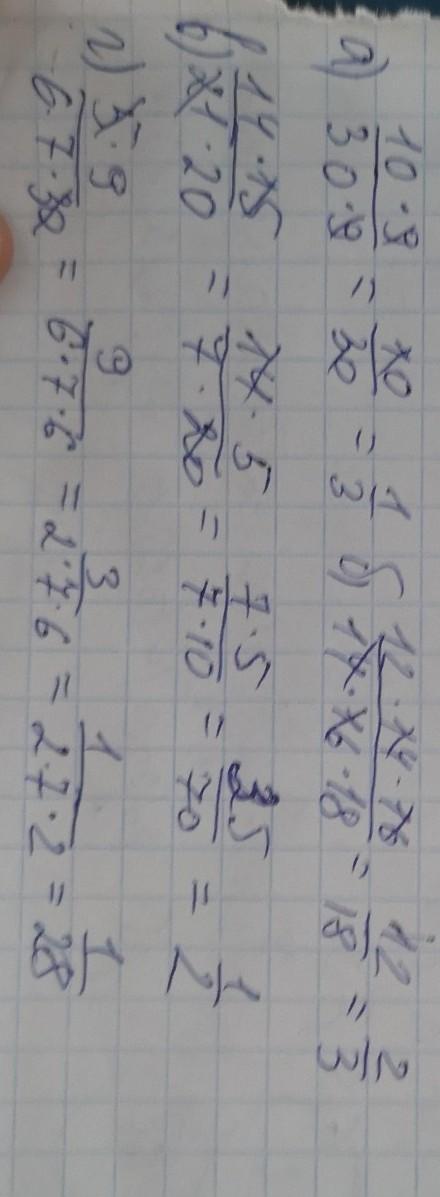 а) 10·9/30·9 = 10/30 = 1/3 б) 12·14·16/14·16·18 = 12/18 = 2/3
в) 14·15/21·20 = 14·5/7·20 = 7·5/7·10 = 35/70 = 1/2
г) 5·9/6·7·30 = 9/6·7·6 = 3/2·7·6 = 1/2·7·2 = 1/28